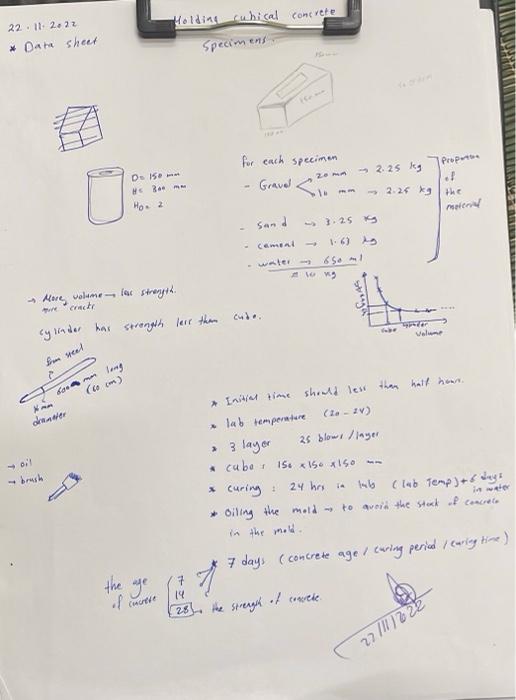 22.11.2022
Molding cubical concrete
* Data sheet
Specimens.
150 mm
D= 150 mm
H= 300 mm
No= 2
for each specimen
- Gravel 20 mm → 2.25 kg
10 mm → 2.25 kg
Proportion of the material
- sand → 3.25 kg
- cement → 1.63 kg
- water → 650 ml
= 10 kg
→ More volume → less strength.
more cracks
cylinder has strength less than cube.
strength
cube cylinder
Volume
from steel
600 mm long
(60 cm)
16 mm
diameter
* Initial time should less than half hour.
* lab temperature (20-24)
* 3 layer 25 blows/layer
* cube: 150 x150 x150 mm
* curing: 24 hrs in lab (lab Temp) + 6 days in water
→ oil
→ brush
* Oiling the mold → to avoid the stuck of concrete
in the mold.
* 7 days (concrete age / curing period / curing time)
the age of concrete
7
14
28 → the strength of concrete.
22/11/2022